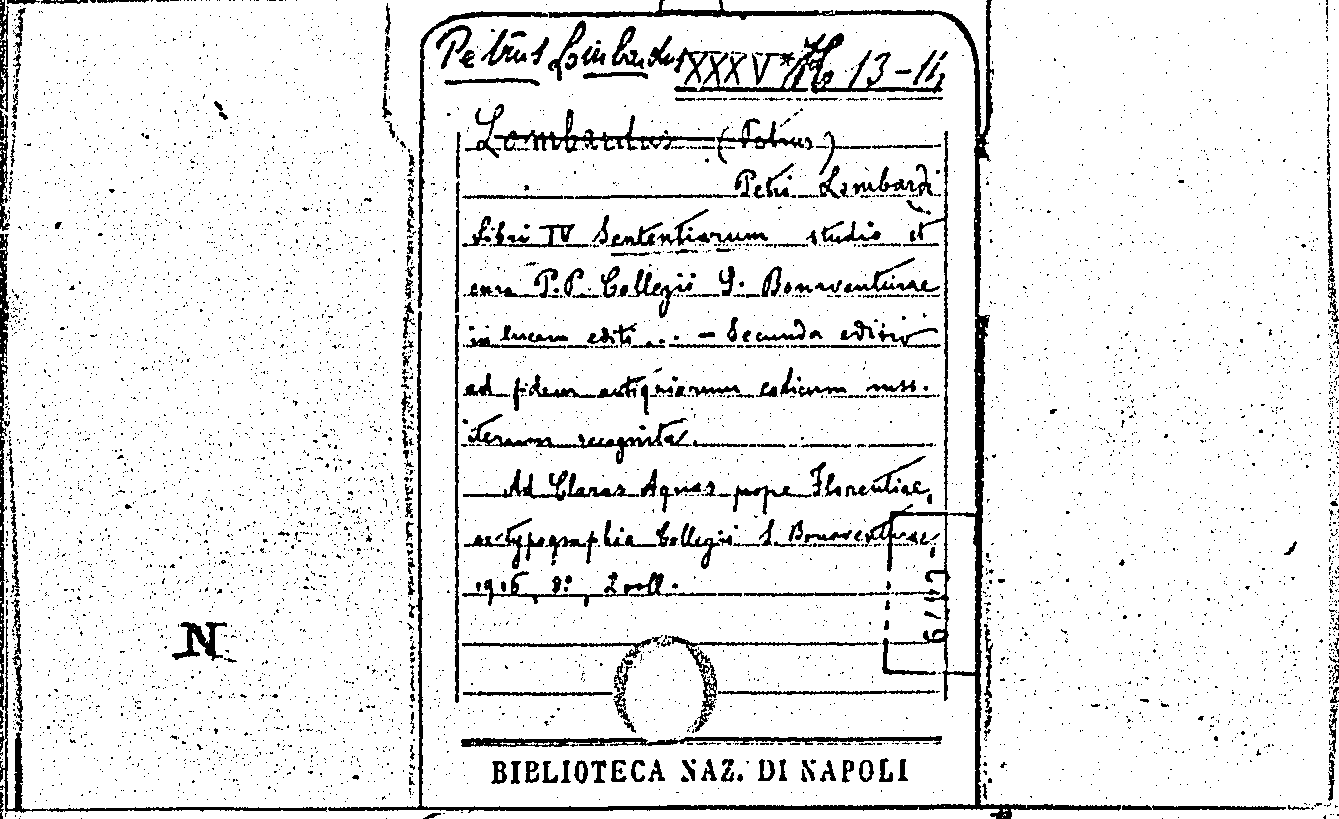 Petrus Lombardus XXXV* H 13-14
Lombardus (Petrus)
Petri Lombardi
Libri IV Sententiarum studio et
cura P.P. Collegii S. Bonaventurae
in lucem editi... - Secunda editio
ad fidem antiquiorum codicum mss.
iterum recognita.
Ad Claras Aquas prope Florentiae,
ex typographia Collegii S. Bonaventurae,
1916, 8°, 2 voll.
N
BIBLIOTECA NAZ. DI NAPOLI